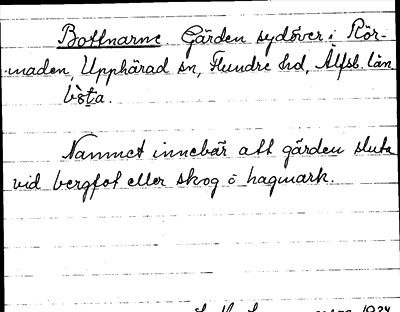 Bottnarne Gärden sydöver i Rör-
maden, Upphärad sn, Flundre hd, Älfsb. län
Namnet innebär att gärden sluta
vid bergfot eller skog o hagmark.